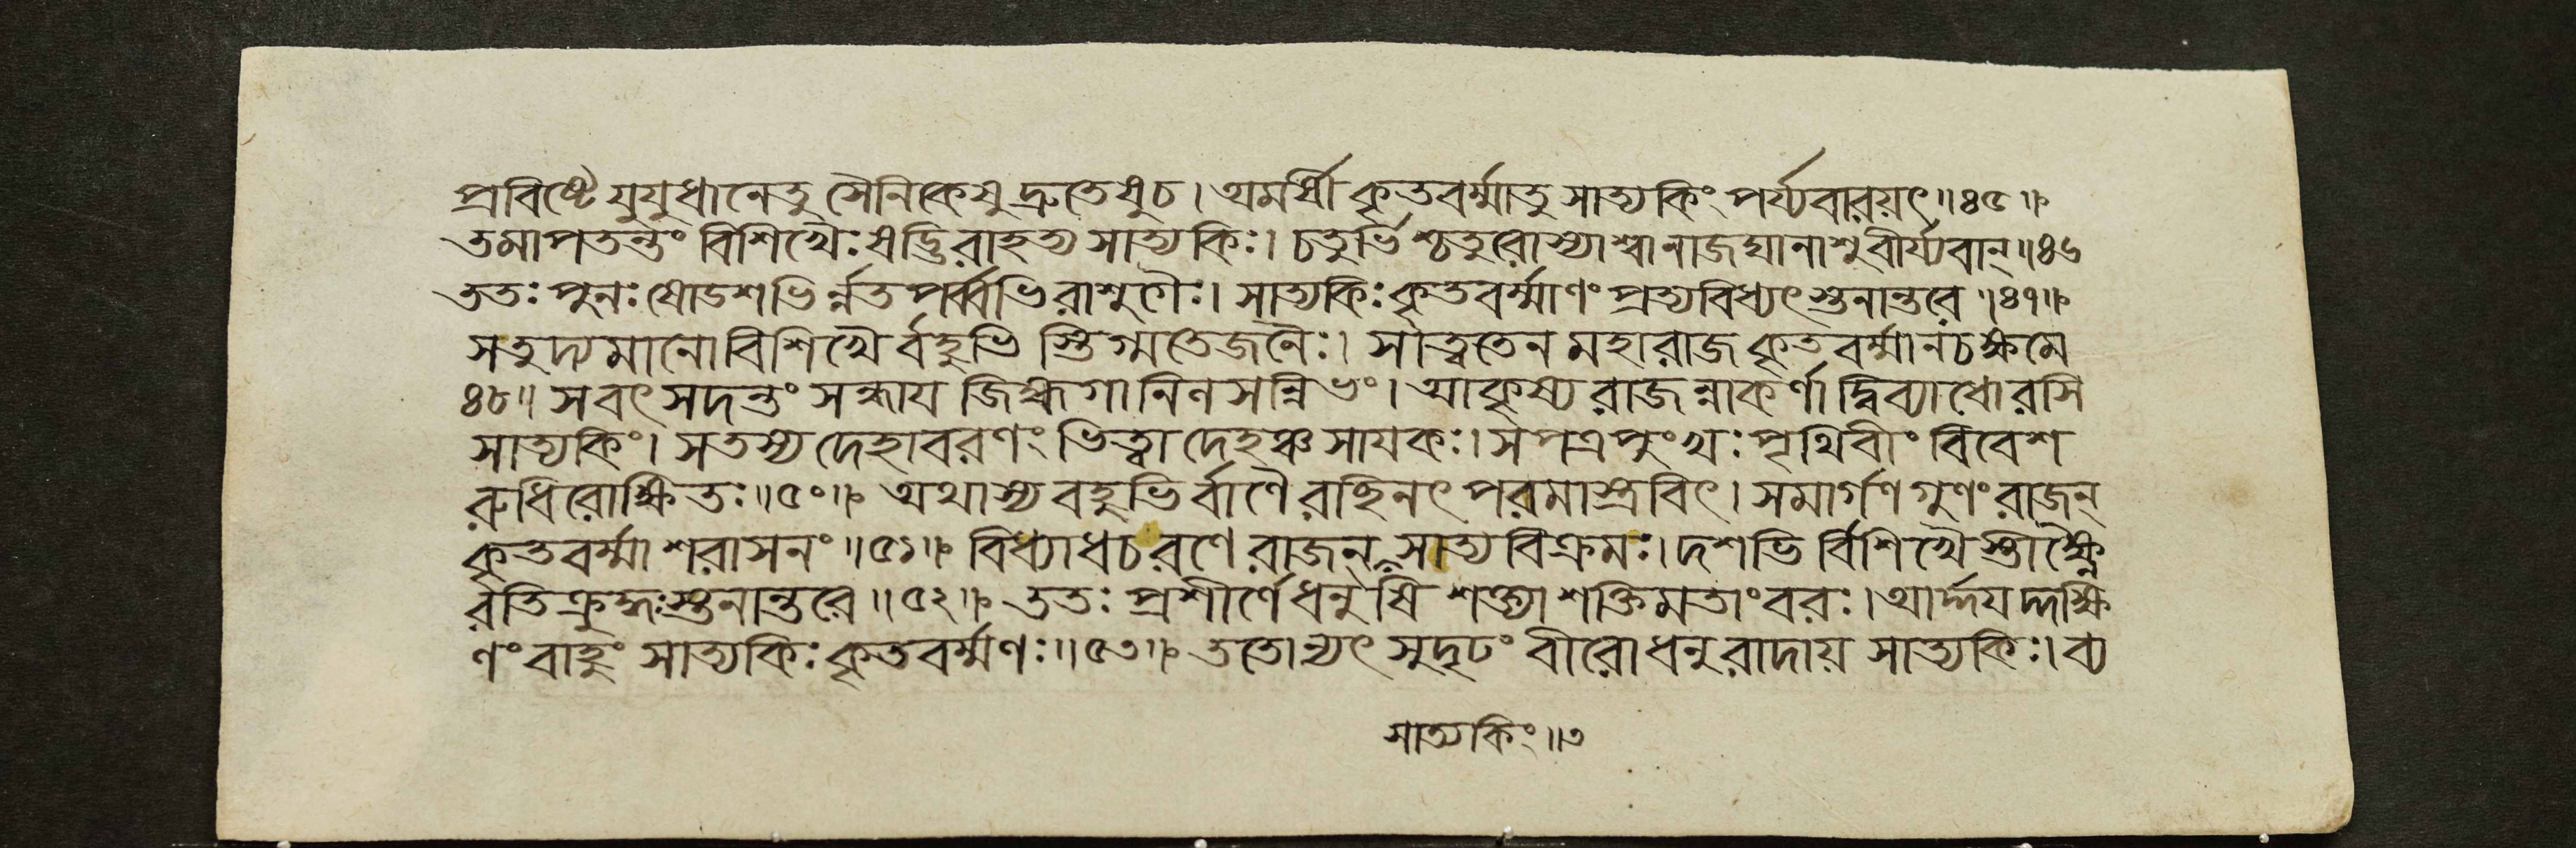 প্রবিষ্টে যুযুধানেতু সৈনিকেষু দ্রুতেষুচ। অমর্ষী কৃতবর্ম্মাতু সাত্যকিং পর্য্যবারয়ৎ॥৪৫॥
তমাপতন্তং বিশিখৈঃ ষড্ভিরাহত্য সাত্যকিঃ। চতুর্ভিশ্চতুরোস্যাশ্বানাজঘানাশু বীর্য্যবান্॥৪৬
ততঃ পুনঃ ষোডশভির্ন্নতপর্ব্বভিরাশুগৈঃ। সাত্যকিঃ কৃতবর্ম্মাণং প্রত্যবিধ্যৎ স্তনান্তরে॥৪৭॥
সতুদ্যমানো বিশিখৈর্বহুভি স্তিগ্মতেজনৈঃ। সাত্বতেন মহারাজ কৃতবর্ম্মানচক্ষমে
৪৮॥ সবৎসদন্তং সন্ধায জিহ্মগানিনসন্নিভং। আকৃষ্য রাজন্নাকর্ণাদ্বিব্যাধোরসি
সাত্যকিং। সতস্য দেহাবরণং ভিত্বা দেহঞ্চ সাযকঃ। সপত্রপুংখঃ পৃথিবীং বিবেশ
রুধিরোক্ষিতঃ॥৫০॥ অথাস্য বহুভির্বাণৈরচ্ছিনৎ পরমাস্ত্রবিৎ। সমার্গণগুণং রাজন্
কৃতবর্ম্মা শরাসনং॥৫১॥ বিধ্যাধচরণে রাজন্ সাত্যবিক্রমঃ। দশভির্বিশিখৈস্তীক্ষ্ণৈ
রতিক্রুদ্ধঃস্তনান্তরে॥৫২॥ ততঃ প্রশীর্ণে ধনুষি শক্ত্যা শক্তিমতাংবরঃ। আর্দ্দযদ্দক্ষি
ণং বাহুং সাত্যকিঃ কৃতবর্ম্মণঃ॥৫৩॥ ততোন্যৎ সুদৃঢং বীরো ধনুরাদায় সাত্যকিঃ। ব্য
সাত্যকিং॥৩